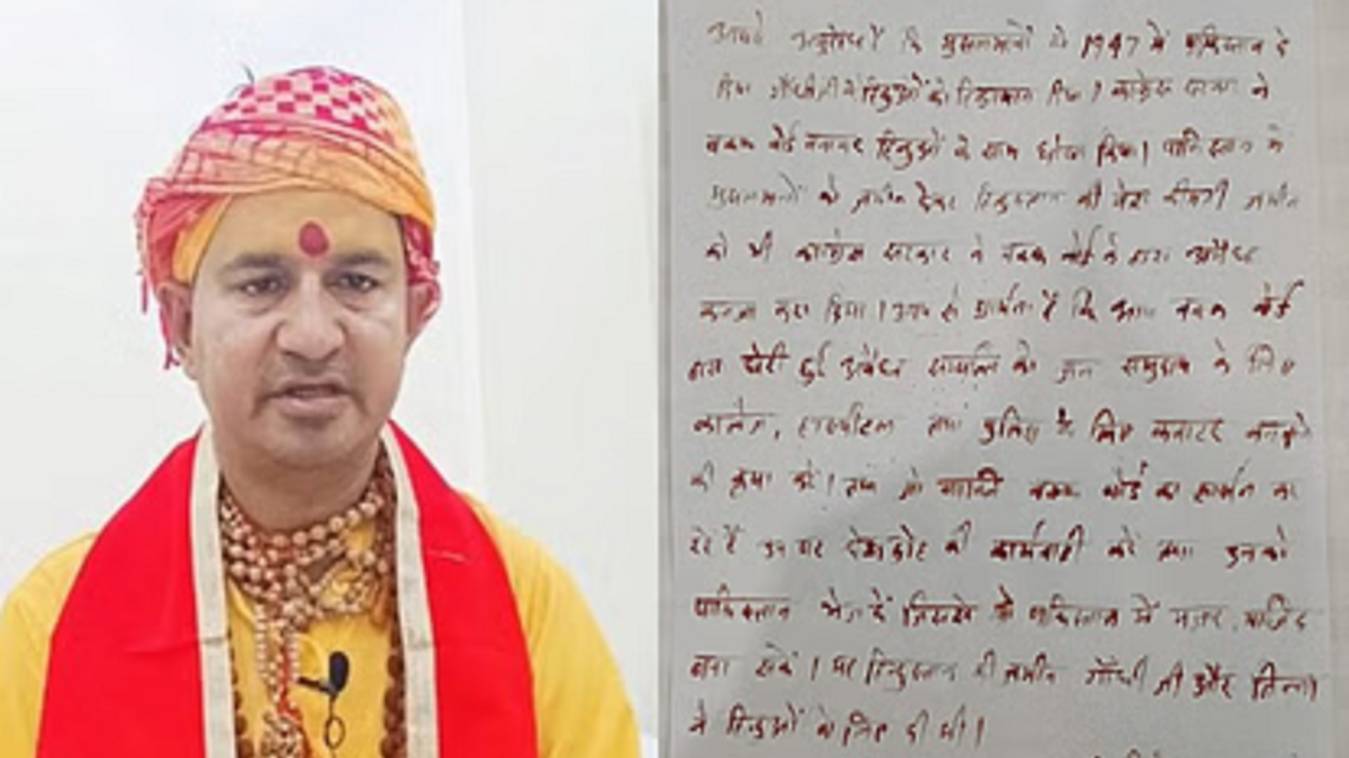 आपसे अनुरोध है कि मुसलमानों को 1947 में पाकिस्तान दे
दिया गाँधी जी ने हिन्दुओं को हिन्दुस्तान दिया। कांग्रेस सरकार ने
वक्फ बोर्ड बनाकर हिन्दुओं के साथ धोखा किया। पाकिस्तान में
मुसलमानों को जमीन देकर हिन्दुस्तान की जमीन
को भी कांग्रेस सरकार ने वक्फ बोर्ड के द्वारा अवैध
कब्जा करा दिया। आप से प्रार्थना है कि आप वक्फ बोर्ड
द्वारा घेरी हुई अवैध सम्पत्ति को जन समुदाय के लिए
कालेज, हास्पीटल तथा पुलिस के लिए क्वाटर बनवाने
की कृपा करें। तथा जो व्यक्ति वक्फ बोर्ड का समर्थन कर
रहे हैं उन पर देशद्रोह की कार्यवाही करें तथा उनको
पाकिस्तान भेज दें जिससे वो पाकिस्तान में मजार, मस्जिद
बना सकें। यह हिन्दुस्तान की जमीन गाँधी जी और जिन्ना
ने हिन्दुओं के लिए दी थी।